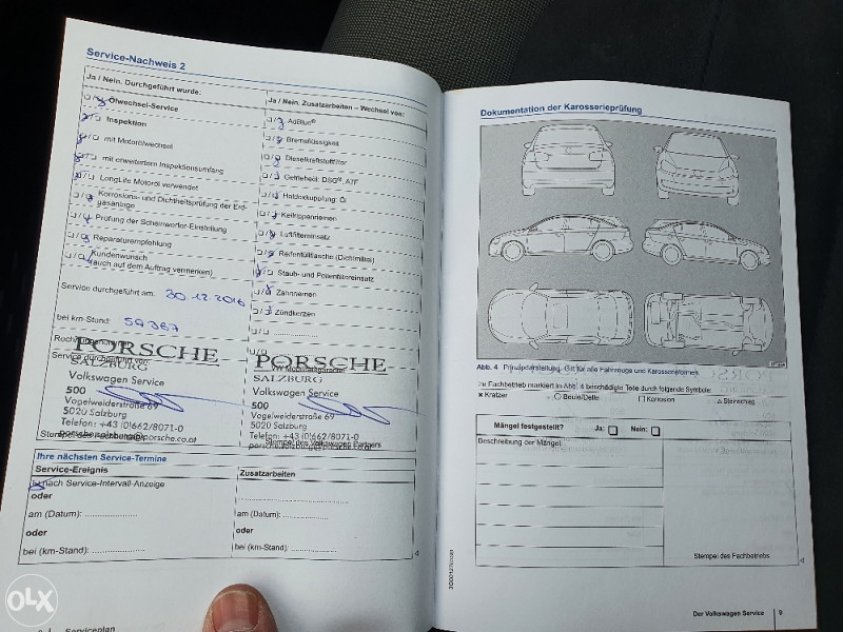 Service-Nachweis 2
Ja / Nein. Durchgeführt wurde:
Ölwechsel-Service
Inspektion
mit Motorölwechsel
mit erweitertem Inspektionsumfang
LongLife Motoröl verwendet
Korrosions- und Dichtheitsprüfung der Erd-
gasanlage
Prüfung der Scheinwerfer-Einstellung
Reparaturempfehlung
Kundenwunsch
(auch auf dem Auftrag vermerken)
Service durchgeführt am: 30.12.2016
bei km-Stand: 59367
Service durchgeführt von:
PORSCHE
SALZBURG
Volkswagen Service
500
Vogelweiderstraße 69
5020 Salzburg
Telefon: +43 (0)662/8071-0
Ja / Nein. Zusatzarbeiten – Wechsel von:
AdBlue®
Bremsflüssigkeit
Dieselkraftstofffilter
Getriebeöl: DSG®, ATF
Haldexkupplung: Öl
Keilrippenriemen
Luftfiltereinsatz
Reifenfüllflasche (Dichtmittel)
Staub- und Pollenfiltereinsatz
Zahnriemen
Zündkerzen
PORSCHE
SALZBURG
Volkswagen Service
500
Vogelweiderstraße 69
5020 Salzburg
Telefon: +43 (0)662/8071-0
Stempel des Volkswagen Partners
Ihre nächsten Service-Termine
Service-Ereignis
nach Service-Intervall-Anzeige
oder
am (Datum):
oder
bei (km-Stand):
Zusatzarbeiten
am (Datum):
oder
bei (km-Stand):
Serviceplan
Dokumentation der Karosserieprüfung
Abb. 4 Prinzipdarstellung: Gilt für alle Fahrzeuge und Karosserieformen.
Fachbetrieb markiert in Abb. 4 beschädigte Teile durch folgende Symbole:
× Kratzer ○ Beule/Delle □ Korrosion △ Steinschlag
Mängel festgestellt? Ja: Nein:
Beschreibung der Mängel
Stempel des Fachbetriebs
Der Volkswagen Service 9
OLX